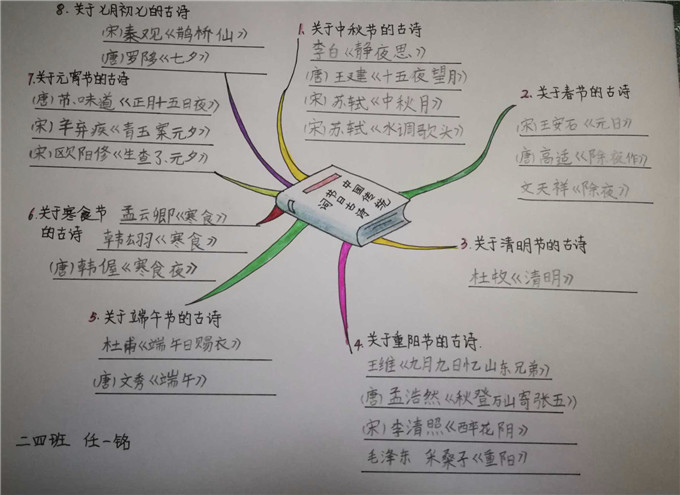 中国传统
节日古诗
词
1.关于中秋节的古诗
李白《静夜思》
(唐)王建《十五夜望月》
(宋)苏轼《中秋月》
(宋)苏轼《水调歌头》
2.关于春节的古诗
(宋)王安石《元日》
(唐)高适《除夜作》
文天祥《除夜》
3.关于清明节的古诗
杜牧《清明》
4.关于重阳节的古诗.
王维《九月九日忆山东兄弟》
(唐)孟浩然《秋登万山寄张五》
(宋)李清照《醉花阴》
毛泽东 采桑子《重阳》
5.关于端午节的古诗
杜甫《端午日赐衣》
(唐)文秀《端午》
6.关于寒食节
的古诗
孟云卿《寒食》
韩翃《寒食》
(唐)韩偓《寒食夜》
7.关于元宵节的古诗
(唐)苏味道《正月十五日夜》
(宋)辛弃疾《青玉案元夕》
(宋)欧阳修《生查子.元夕》
8.关于七月初七的古诗
(宋)秦观《鹊桥仙》
(唐)罗隐《七夕》
二四班 任一铭